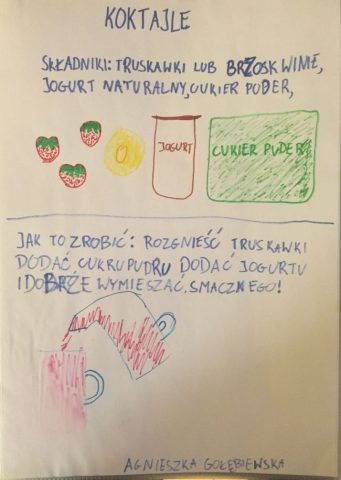 KOKTAJLE
SKŁADNIKI: TRUSKAWKI LUB BRZOSKWIMĘ,
JOGURT NATURALNY, CUKIER PUDER,
JOGURT
CUKIER PUDER
JAK TO ZROBIĆ: ROZGNIEŚĆ TRUSKAWKI
DODAĆ CUKRU PUDRU DODAĆ JOGURTU
I DOBRŻE WYMIESZAĆ. SMACZNEGO!
AGNIESZKA GOŁĘBIEWSKA